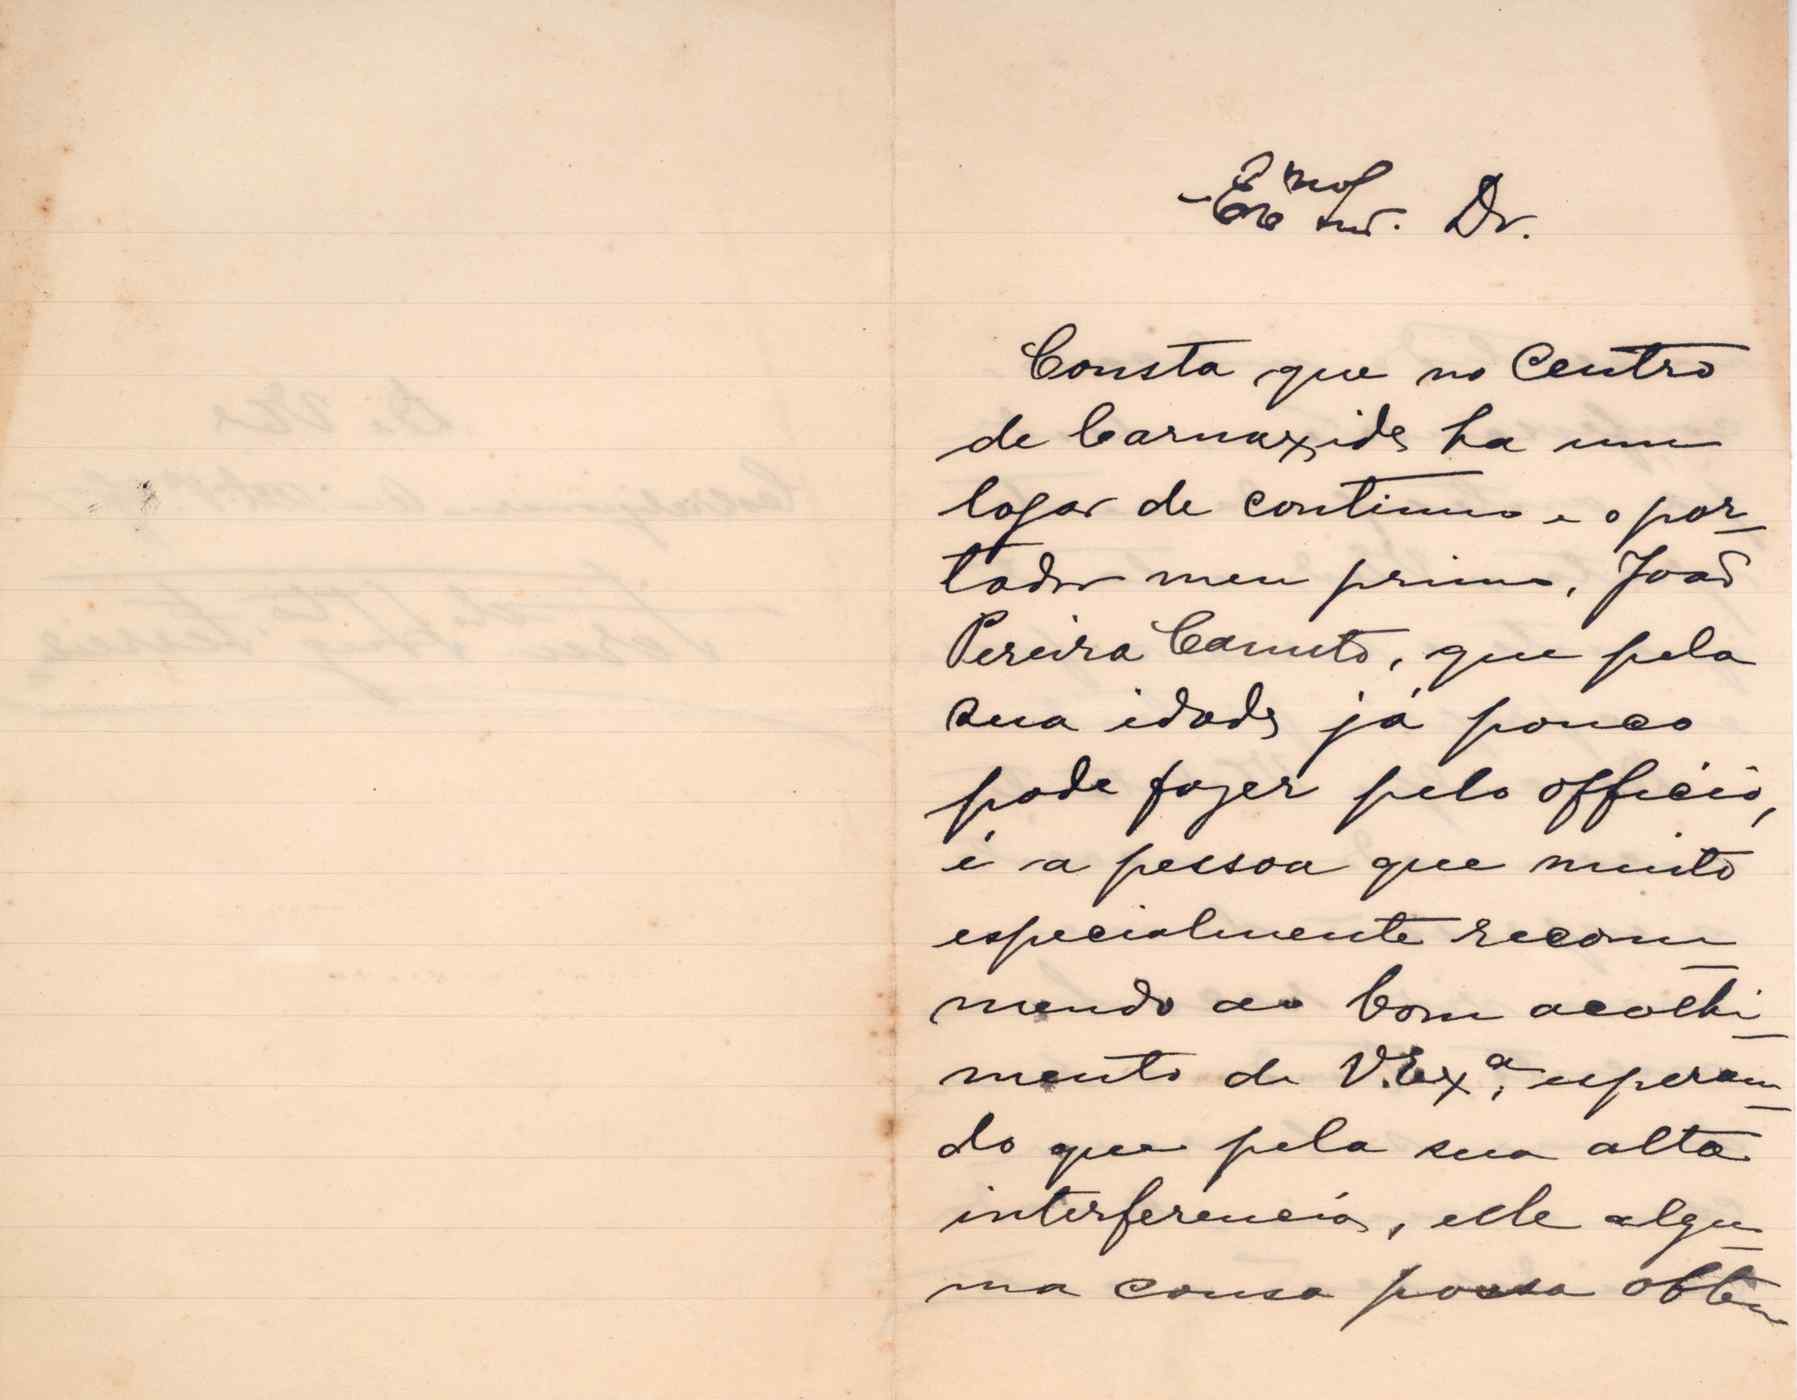 Ex.mo Snr. Dr.
Consta que no Centro
de Carnaxide ha um
logar de continuo e o por-
tador meu primo, João
Pereira Canuto, que pela
sua idade já pouco
pode fazer pelo officio,
é a pessoa que muito
especialmente recom-
mendo ao bom acolhi-
mento de V. Ex.a, esperan-
do que pela sua alta
interferencia, elle algu-
ma cousa possa obter